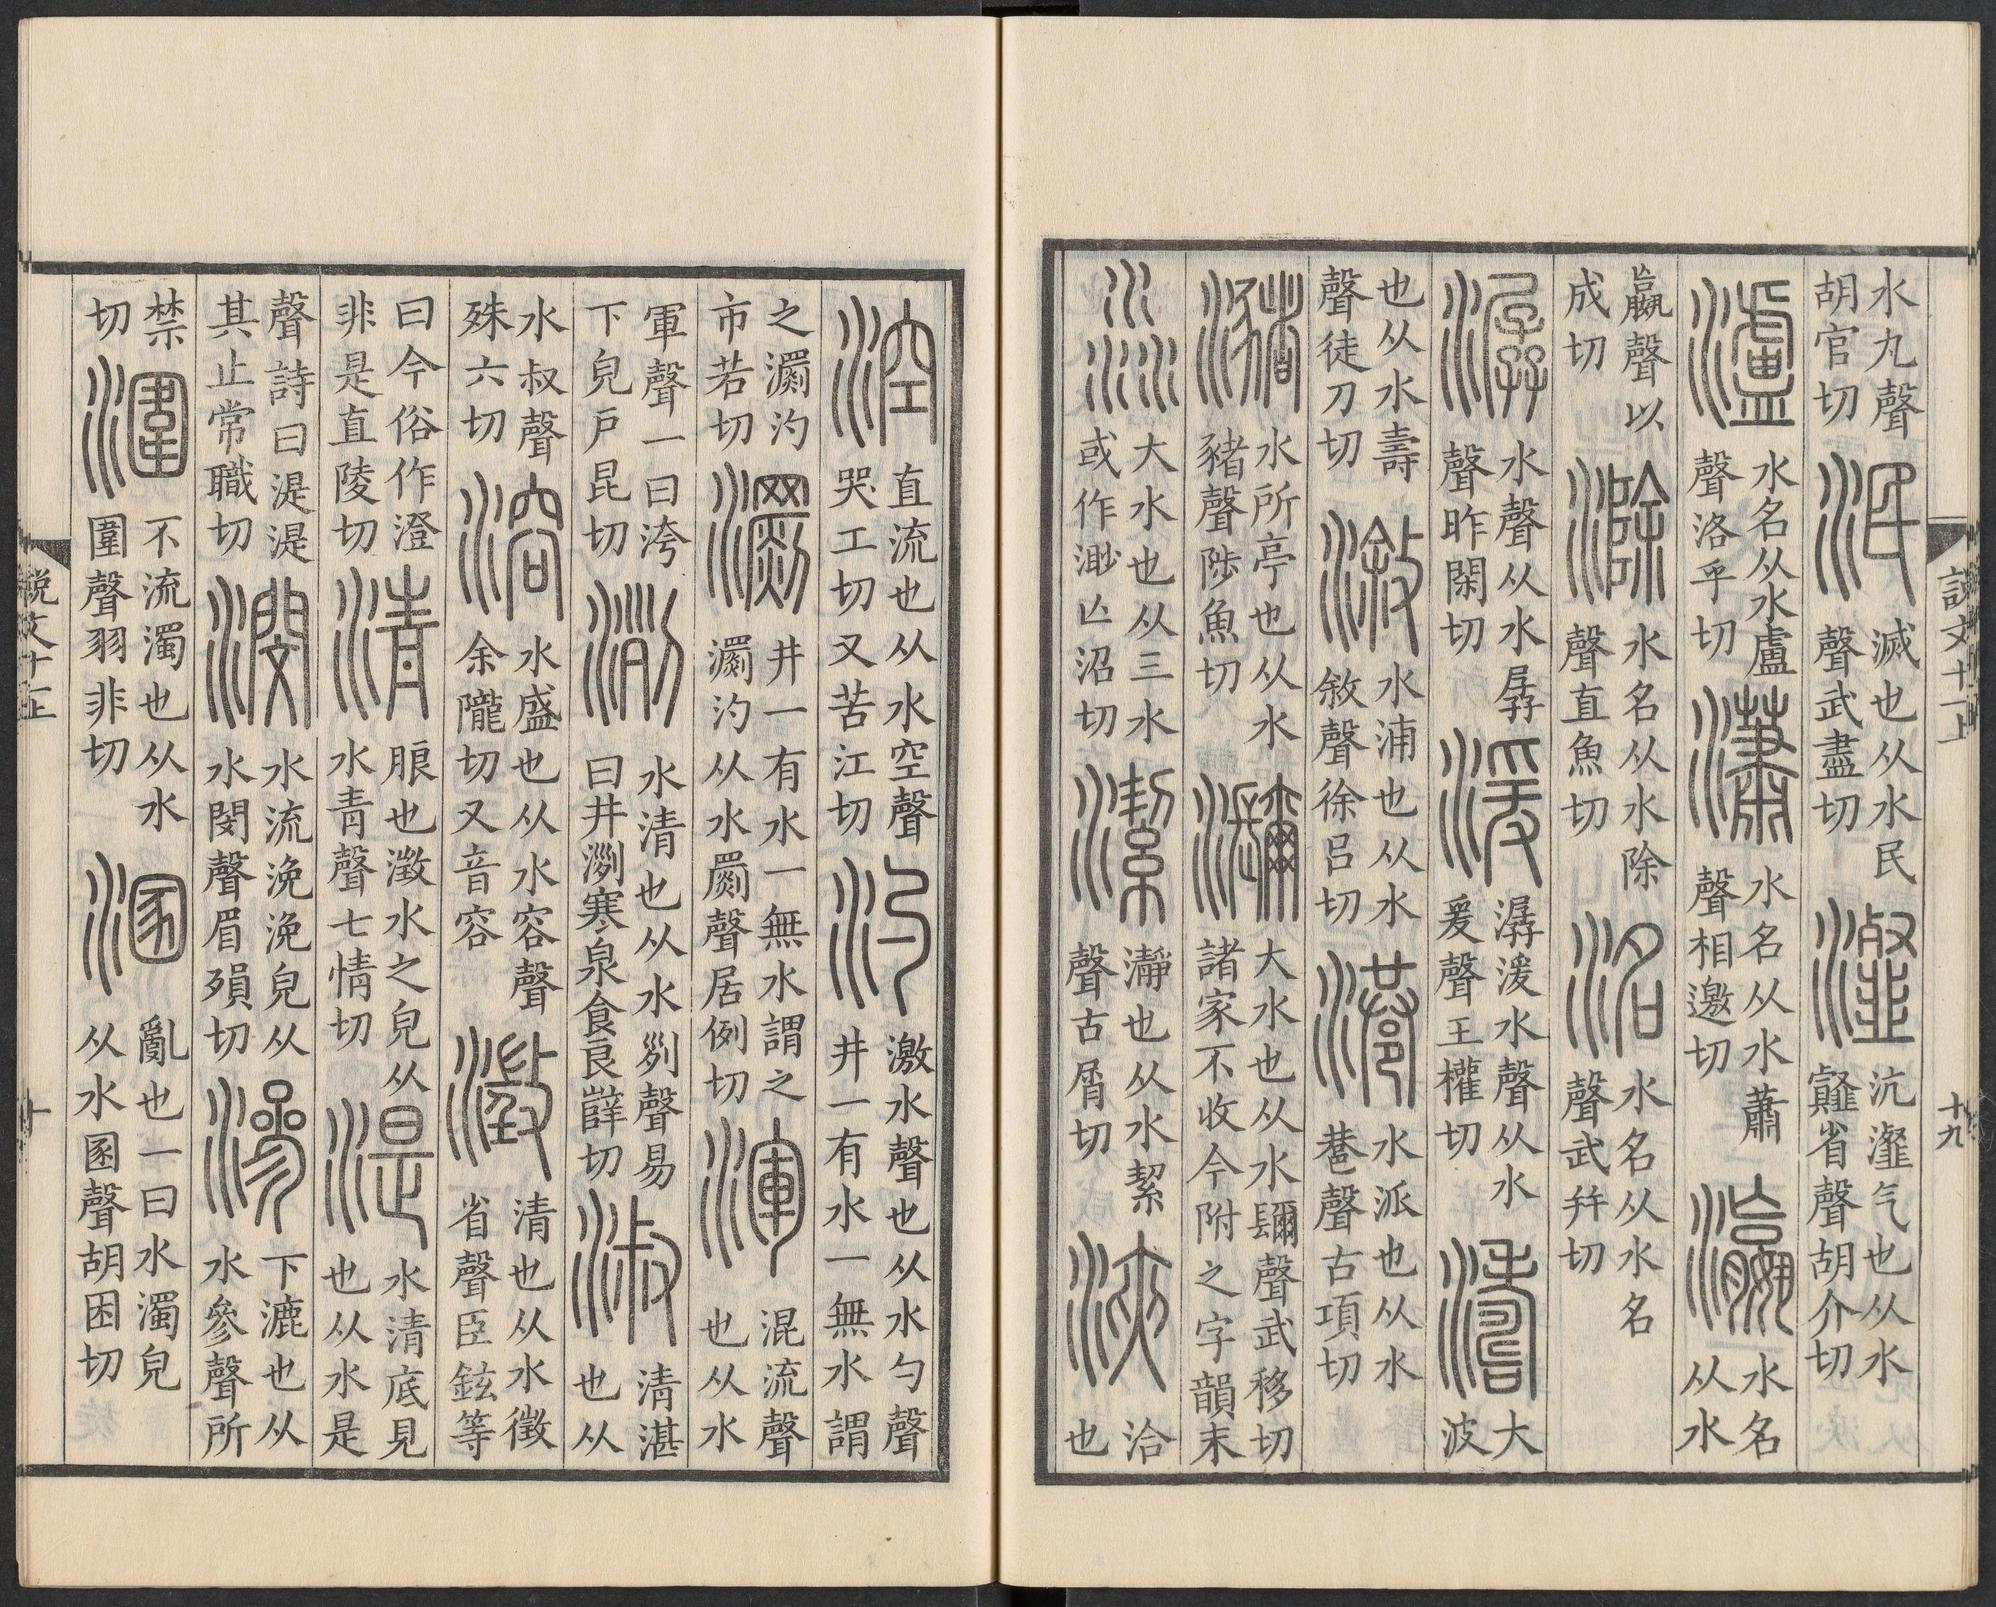 說文十一上
十九
水丸聲
胡官切
泯
滅也从水民
聲武盡切
瀣
沆瀣气也从水
𩐁省聲胡介切
瀘
水名从水盧
聲洛乎切
瀟
水名从水蕭
聲相邀切
瀛
水名
从水
嬴聲以
成切
滁
水名从水除
聲直魚切
洺
水名从水名
聲武并切
潺
水聲从水孱
聲昨閑切
湲
潺湲水聲从水
爰聲王權切
濤
大
波
也从水壽
聲徒刀切
漵
水浦也从水
敘聲徐呂切
港
水派也从水
巷聲古項切
瀦
水所亭也从水
豬聲陟魚切
瀰
大水也从水镾聲武移切
諸家不收今附之字韻末
淼
大水也从三水
或作渺亾沼切
潔
瀞也从水絜
聲古屑切
浹
洽
也
涳
直流也从水空聲
哭工切又苦江切
汋
激水聲也从水勺聲
井一有水一無水謂
之瀱汋
市若切
瀱
井一有水一無水謂之
瀱汋从水罽聲居例切
渾
混流聲
也从水
軍聲一曰洿
下皃戶昆切
洌
水清也从水列聲易
曰井洌寒泉食良辥切
淑
清湛
也从
水叔聲
殊六切
溶
水盛也从水容聲
余隴切又音容
澂
清也从水徵
省聲臣鉉等
曰今俗作澄
非是直陵切
清
朖也澂水之皃从
水青聲七情切
湜
水清底見
也从水是
聲詩曰湜湜
其止常職切
潣
水流浼浼皃从
水閔聲眉殞切
滲
下漉也从
水參聲所
禁
切
潿
不流濁也从水
圍聲羽非切
溷
亂也一曰水濁皃
从水圂聲胡困切